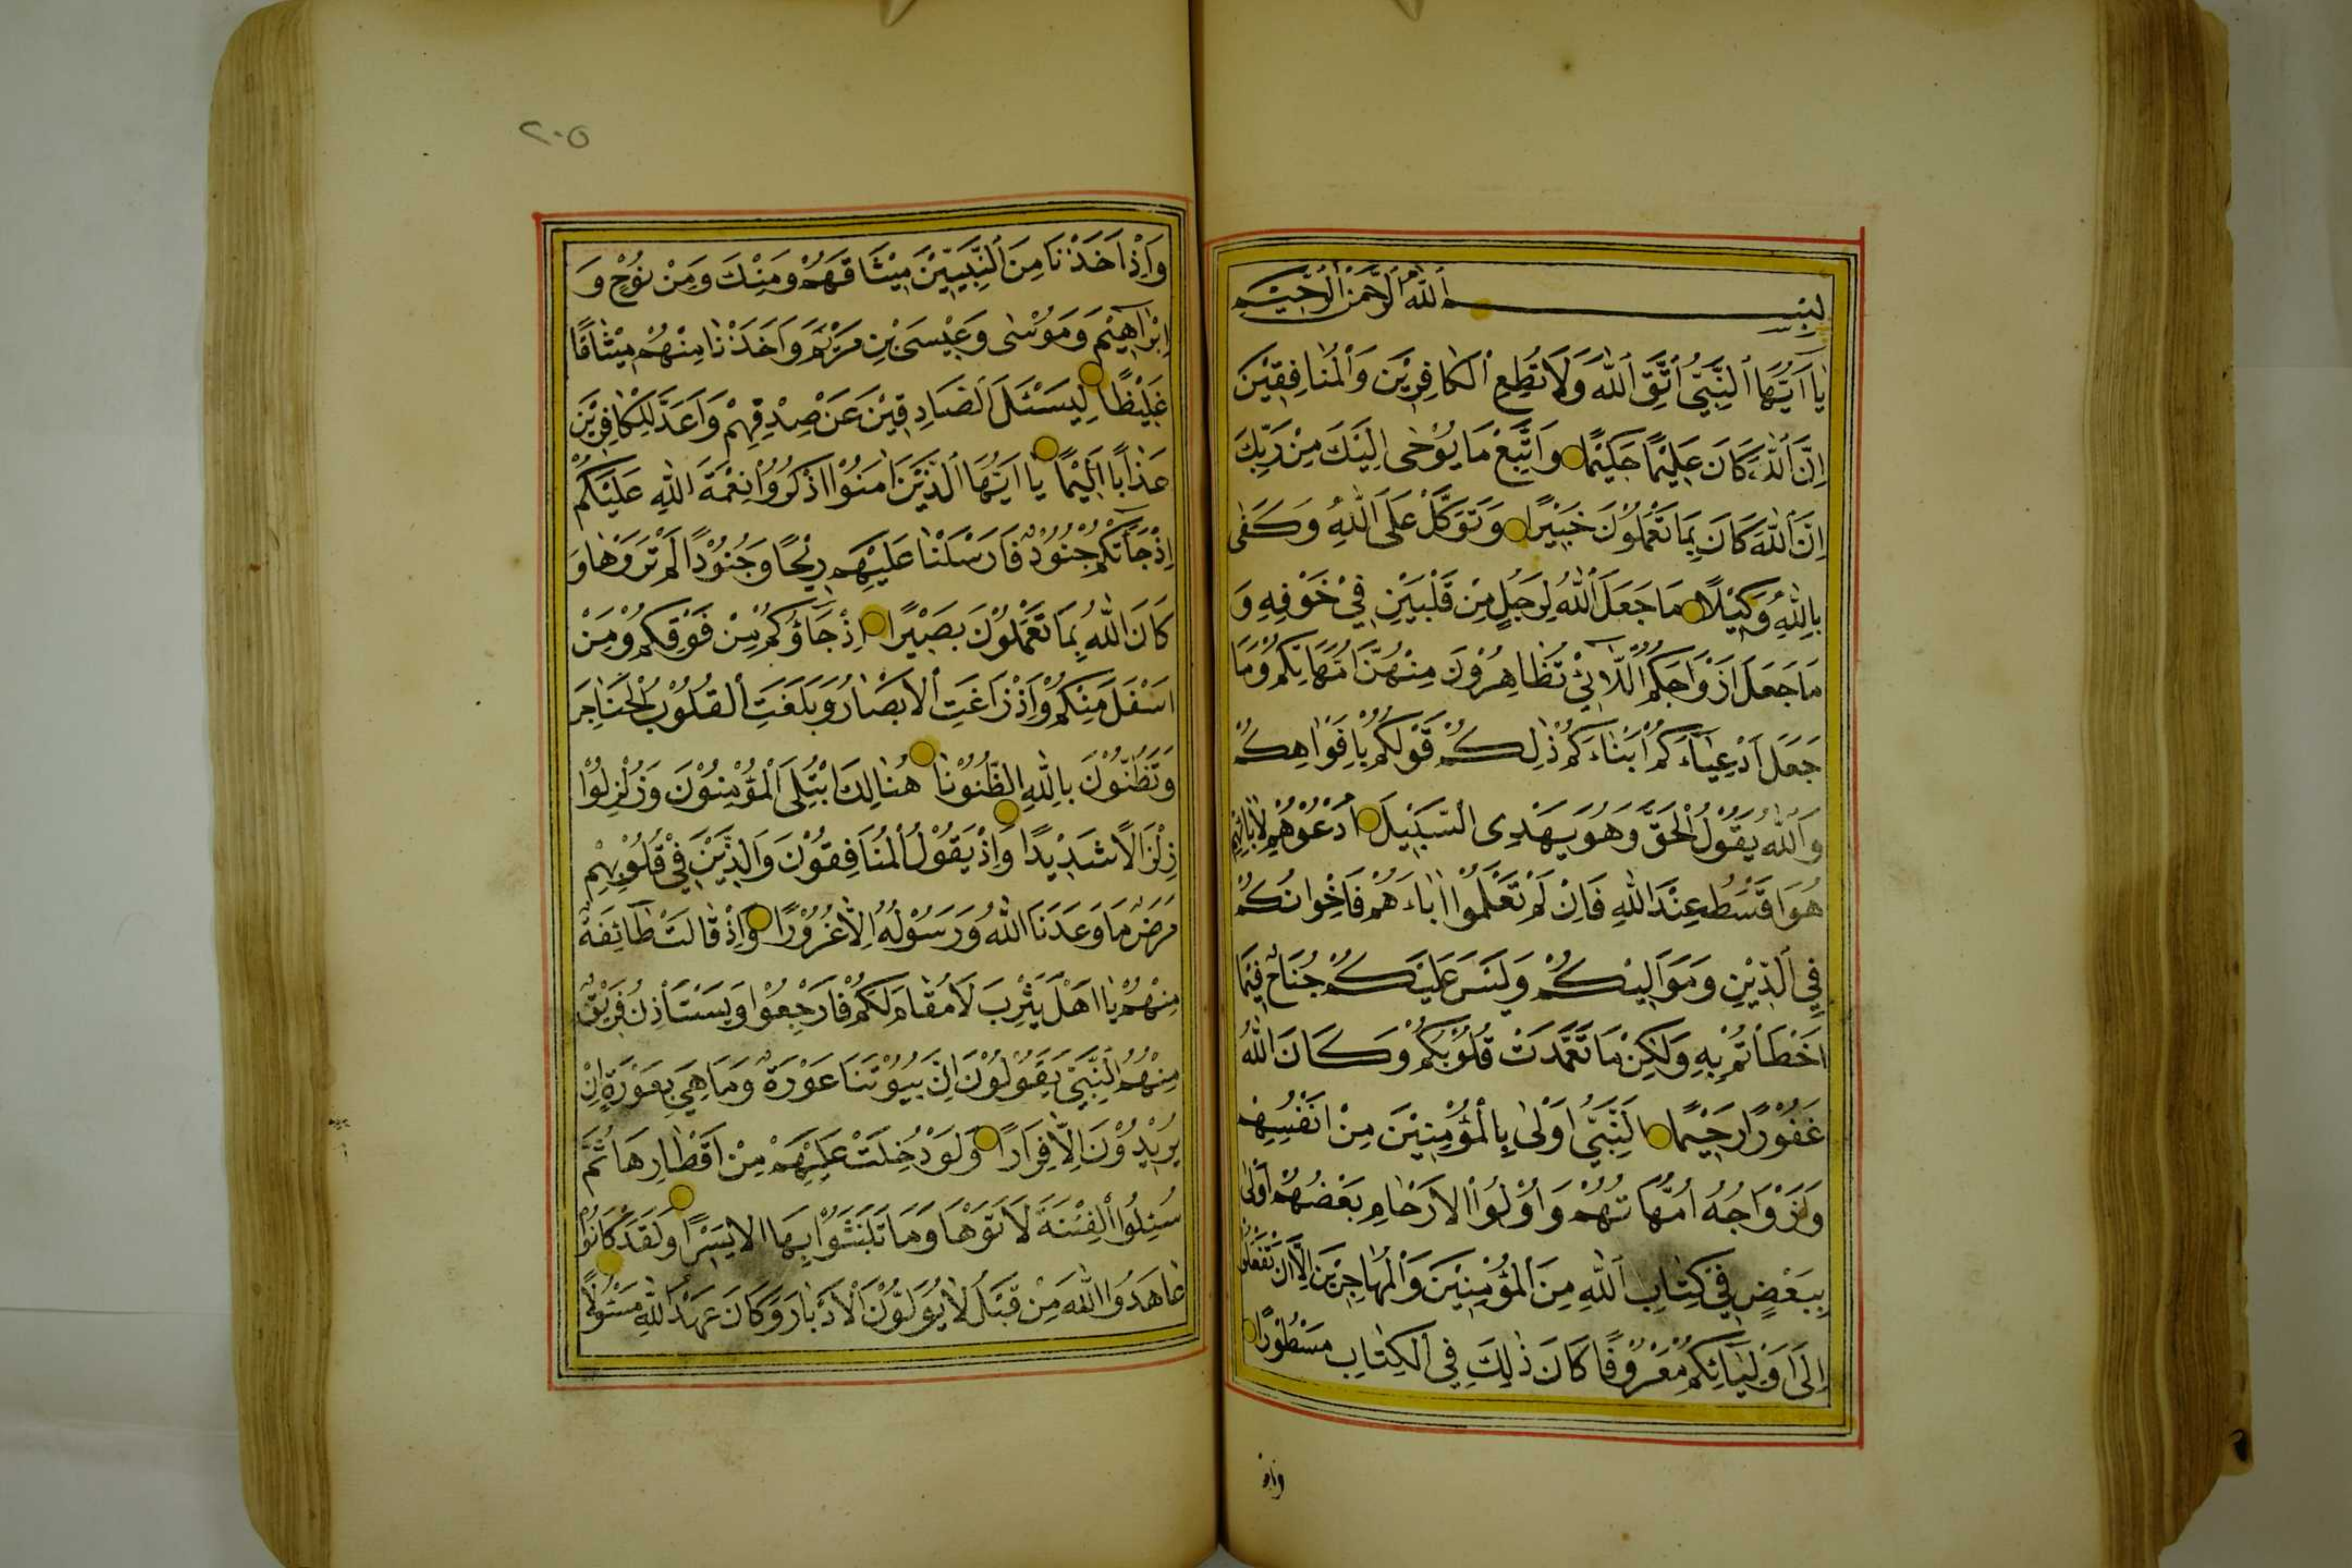 بِسْمِ اللّٰهِ الرَّحْمٰنِ الرَّحِيْمِ
يَا اَيُّهَا النَّبِيُّ اتَّقِ اللّٰهَ وَلَا تُطِعِ الْكَافِرِيْنَ وَالْمُنَافِقِيْنَ
اِنَّ اللّٰهَ كَانَ عَلِيْمًا حَكِيْمًا وَاتَّبِعْ مَا يُوْحٰى اِلَيْكَ مِنْ رَبِّكَ
اِنَّ اللّٰهَ كَانَ بِمَا تَعْمَلُوْنَ خَبِيْرًا وَتَوَكَّلْ عَلَى اللّٰهِ وَكَفٰى
بِاللّٰهِ وَكِيْلًا مَا جَعَلَ اللّٰهُ لِرَجُلٍ مِنْ قَلْبَيْنِ فِيْ جَوْفِهِ وَ
مَا جَعَلَ اَزْوَاجَكُمُ اللَّائِيْ تُظَاهِرُوْنَ مِنْهُنَّ اُمَّهَاتِكُمْ وَمَا
جَعَلَ اَدْعِيَاءَكُمْ اَبْنَاءَكُمْ ذٰلِكُمْ قَوْلُكُمْ بِاَفْوَاهِكُمْ
وَاللّٰهُ يَقُوْلُ الْحَقَّ وَهُوَ يَهْدِى السَّبِيْلَ اُدْعُوْهُمْ لِاٰبَائِهِمْ
هُوَ اَقْسَطُ عِنْدَ اللّٰهِ فَاِنْ لَمْ تَعْلَمُوْا اٰبَاءَهُمْ فَاِخْوَانُكُمْ
فِي الدِّيْنِ وَمَوَالِيْكُمْ وَلَيْسَ عَلَيْكُمْ جُنَاحٌ فِيْمَا
اَخْطَأْتُمْ بِهِ وَلٰكِنْ مَا تَعَمَّدَتْ قُلُوْبُكُمْ وَكَانَ اللّٰهُ
غَفُوْرًا رَحِيْمًا اَلنَّبِيُّ اَوْلٰى بِالْمُؤْمِنِيْنَ مِنْ اَنْفُسِهِمْ
وَاَزْوَاجُهُ اُمَّهَاتُهُمْ وَاُوْلُوا الْاَرْحَامِ بَعْضُهُمْ اَوْلٰى
بِبَعْضٍ فِيْ كِتَابِ اللّٰهِ مِنَ الْمُؤْمِنِيْنَ وَالْمُهَاجِرِيْنَ اِلَّا اَنْ تَفْعَلُوْا
اِلٰى اَوْلِيَائِكُمْ مَعْرُوْفًا كَانَ ذٰلِكَ فِي الْكِتَابِ مَسْطُوْرًا
واذ
٢٠٥
وَاِذْ اَخَذْنَا مِنَ النَّبِيِّيْنَ مِيْثَاقَهُمْ وَمِنْكَ وَمِنْ نُوْحٍ وَ
اِبْرَاهِيْمَ وَمُوْسٰى وَعِيْسَى بْنِ مَرْيَمَ وَاَخَذْنَا مِنْهُمْ مِيْثَاقًا
غَلِيْظًا لِيَسْئَلَ الصَّادِقِيْنَ عَنْ صِدْقِهِمْ وَاَعَدَّ لِلْكَافِرِيْنَ
عَذَابًا اَلِيْمًا يَا اَيُّهَا الَّذِيْنَ اٰمَنُوْا اذْكُرُوْا نِعْمَةَ اللّٰهِ عَلَيْكُمْ
اِذْ جَاءَتْكُمْ جُنُوْدٌ فَاَرْسَلْنَا عَلَيْهِمْ رِيْحًا وَجُنُوْدًا لَمْ تَرَوْهَا وَ
كَانَ اللّٰهُ بِمَا تَعْمَلُوْنَ بَصِيْرًا اِذْ جَاؤُكُمْ مِنْ فَوْقِكُمْ وَمِنْ
اَسْفَلَ مِنْكُمْ وَاِذْ زَاغَتِ الْاَبْصَارُ وَبَلَغَتِ الْقُلُوْبُ الْحَنَاجِرَ
وَتَظُنُّوْنَ بِاللّٰهِ الظُّنُوْنَا هُنَالِكَ ابْتُلِيَ الْمُؤْمِنُوْنَ وَزُلْزِلُوْا
زِلْزَالًا شَدِيْدًا وَاِذْ يَقُوْلُ الْمُنَافِقُوْنَ وَالَّذِيْنَ فِيْ قُلُوْبِهِمْ
مَرَضٌ مَا وَعَدَنَا اللّٰهُ وَرَسُوْلُهُ اِلَّا غُرُوْرًا وَاِذْ قَالَتْ طَائِفَةٌ
مِنْهُمْ يَا اَهْلَ يَثْرِبَ لَا مُقَامَ لَكُمْ فَارْجِعُوْا وَيَسْتَأْذِنُ فَرِيْقٌ
مِنْهُمُ النَّبِيَّ يَقُوْلُوْنَ اِنَّ بُيُوْتَنَا عَوْرَةٌ وَمَا هِيَ بِعَوْرَةٍ اِنْ
يُرِيْدُوْنَ اِلَّا فِرَارًا وَلَوْ دُخِلَتْ عَلَيْهِمْ مِنْ اَقْطَارِهَا ثُمَّ
سُئِلُوا الْفِتْنَةَ لَاٰتَوْهَا وَمَا تَلَبَّثُوْا بِهَا اِلَّا يَسِيْرًا وَلَقَدْ كَانُوْا
عَاهَدُوا اللّٰهَ مِنْ قَبْلُ لَا يُوَلُّوْنَ الْاَدْبَارَ وَكَانَ عَهْدُ اللّٰهِ مَسْئُوْلًا